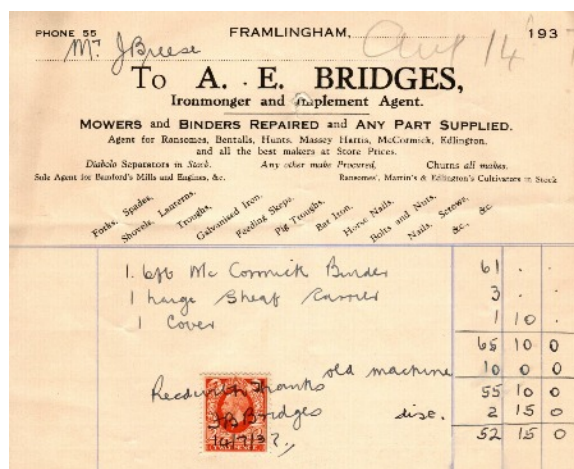 PHONE 55 FRAMLINGHAM, Aug 14 193
Mr. J Breese
TO A. E. BRIDGES,
Ironmonger and Implement Agent.
MOWERS and BINDERS REPAIRED and ANY PART SUPPLIED.
Agent for Ransomes, Bentalls, Hunts, Massey Harris, McCormick, Edlington,
and all the best makers at Store Prices.
Diabolo Separators in Stock. Any other make Procured. Churns all makes.
Sole Agent for Bamford's Mills and Engines, &c. Ransomes', Martin's & Edlington's Cultivators in Stock
Forks, Spades, Shovels, Lanterns, Troughs, Galvanised Iron, Feeding Skeps, Pig Troughs, Bar Iron, Horse Nails, Bolts and Nuts, Nails, Screws, &c., &c
1. 6ft Mc Cormick Binder 61 . .
1 Large Sheaf Carrier 3 . .
1 Cover 1 10 .
65 10 0
old machine 10 0 0
Recd with Thanks 55 10 0
Bridges disc. 2 15 0
52 15 0